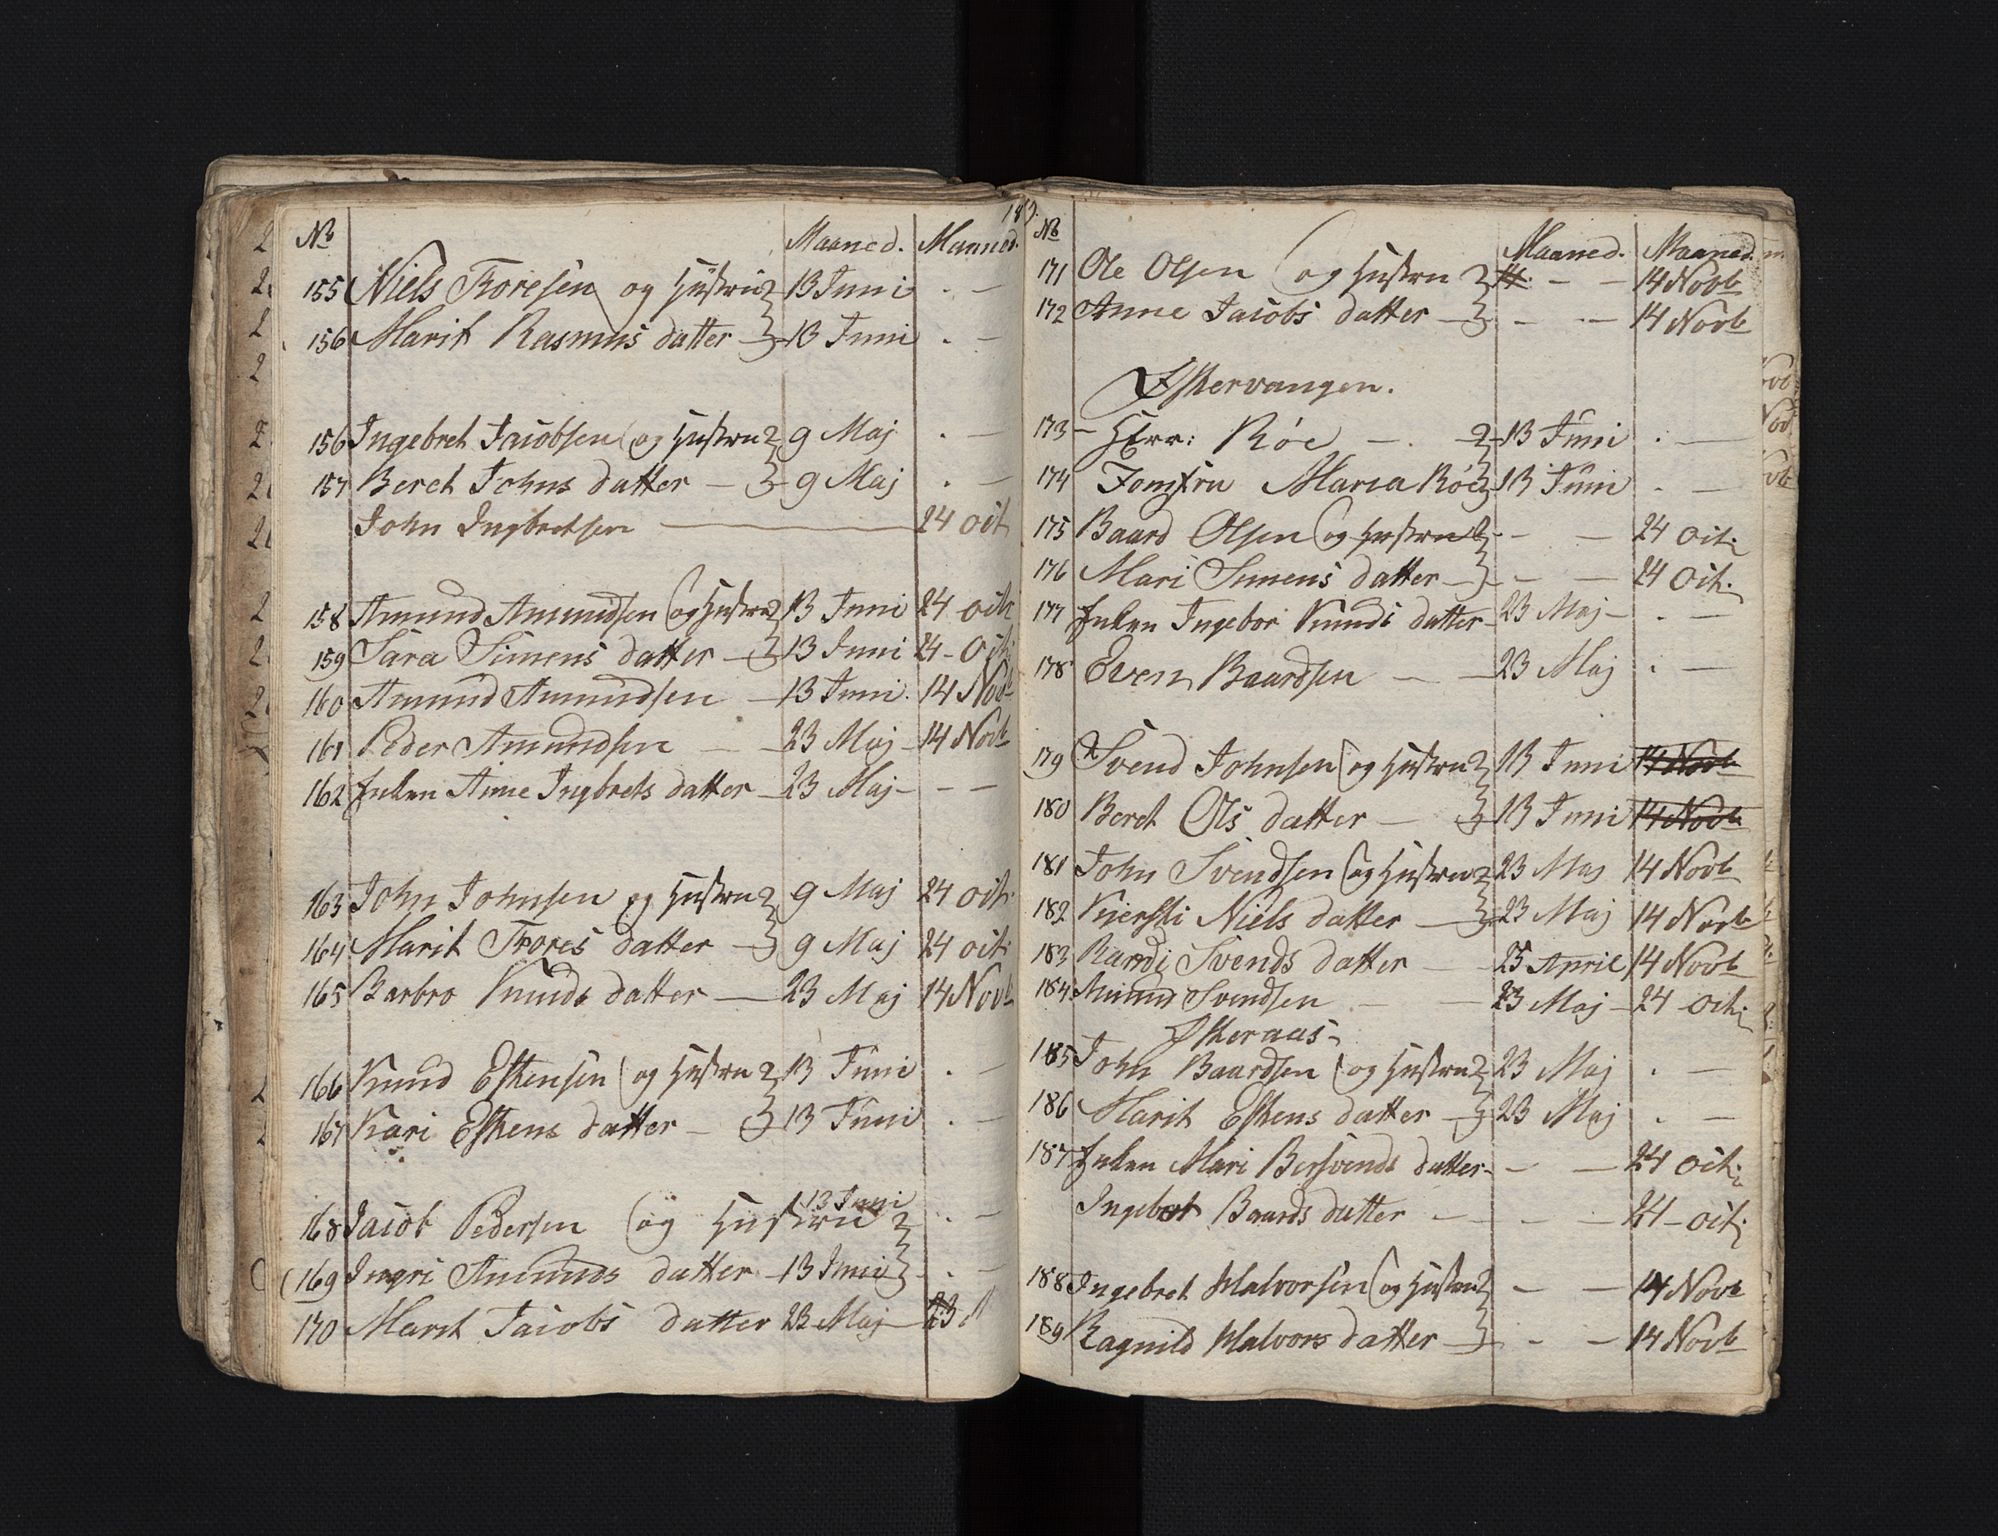 No Maaned. Maaned.
155 Niels Toresen og Hustru 13 Juni . —
156 Marit Rasmus datter — 13 Juni . —
156 Ingebret Jacobsen (og Hustru 9 Maj . —
157 Beret Johns datter — 9 Maj . —
John Ingbretsen — 24 Oct
158 Amund Amundsen (og Hustru 13 Juni 24 oct
159 Sara Simens datter — 13 Juni 24 - Oct:
160 Amund Amundsen — 13 Juni . 14 Novb
161 Peder Amundsen — — 23 Maj — 14 Novb
162 Enken Anne Ingbrets datter — 23 Maj — — —
163 John Johnsen og Hustru 9 Maj 24 oct:
164 Marit Tores datter — 9 Maj 24 oct:
165 Barbro Knuds datter — 23 Maj 14 Novb
166 Knud Eskensen (og Hustru 13 Juni . —
167 Kari Eskens datter — 13 Juni . —
168 Jacob Pedersen (og Hustru 13 Juni . —
(169 Ingri Amunds datter — 13 Juni . —
170 Marit Jacobs datter 23 Maj — 23 N
No Maaned. Maaned.
171 Ole Olsen (og Hustru 14. — — 14 Novb
172 Anne Jacobs datter — — — 14 Novb
Eskervangen.
173 — Herr: Röe — . 13 Juni . —
174 Jomfru Maria Röe 13 Juni . —
175 Baard Olsen (og Hustru — — 24 Oct:
176 Mari Simens datter — — — 24 Oct:
177 Enken Ingebor Knuds datter — 23 Maj — . —
178 Even Baardsen — — 23 Maj . —
179 x Svend Johnsen (og Hustru 13 Juni 14 Novb
180 Beret Ols datter — 13 Juni 14 Novb
181 John Svendsen (og Hustru 23 Maj 14 Novb
182 Kiersti Niels datter — 23 Maj 14 Novb
183 Randi Svends datter — 25 April 14 Novb
184 Amund Svendsen — — 23 Maj — 24 oct:
Eskeraas —
185 John Baardsen (og Hustru 23 Maj . —
186 Marit Eskens datter — 23 Maj . —
187 Enken Mari Bersvends datter — — — 24 Oct:
Ingebor Baards datter — — — 24 - oct:
188 Ingebret Halvorsen (og Hustru — — 14 Novb
189 Ragnild Halvors datter — — — 14 Novb